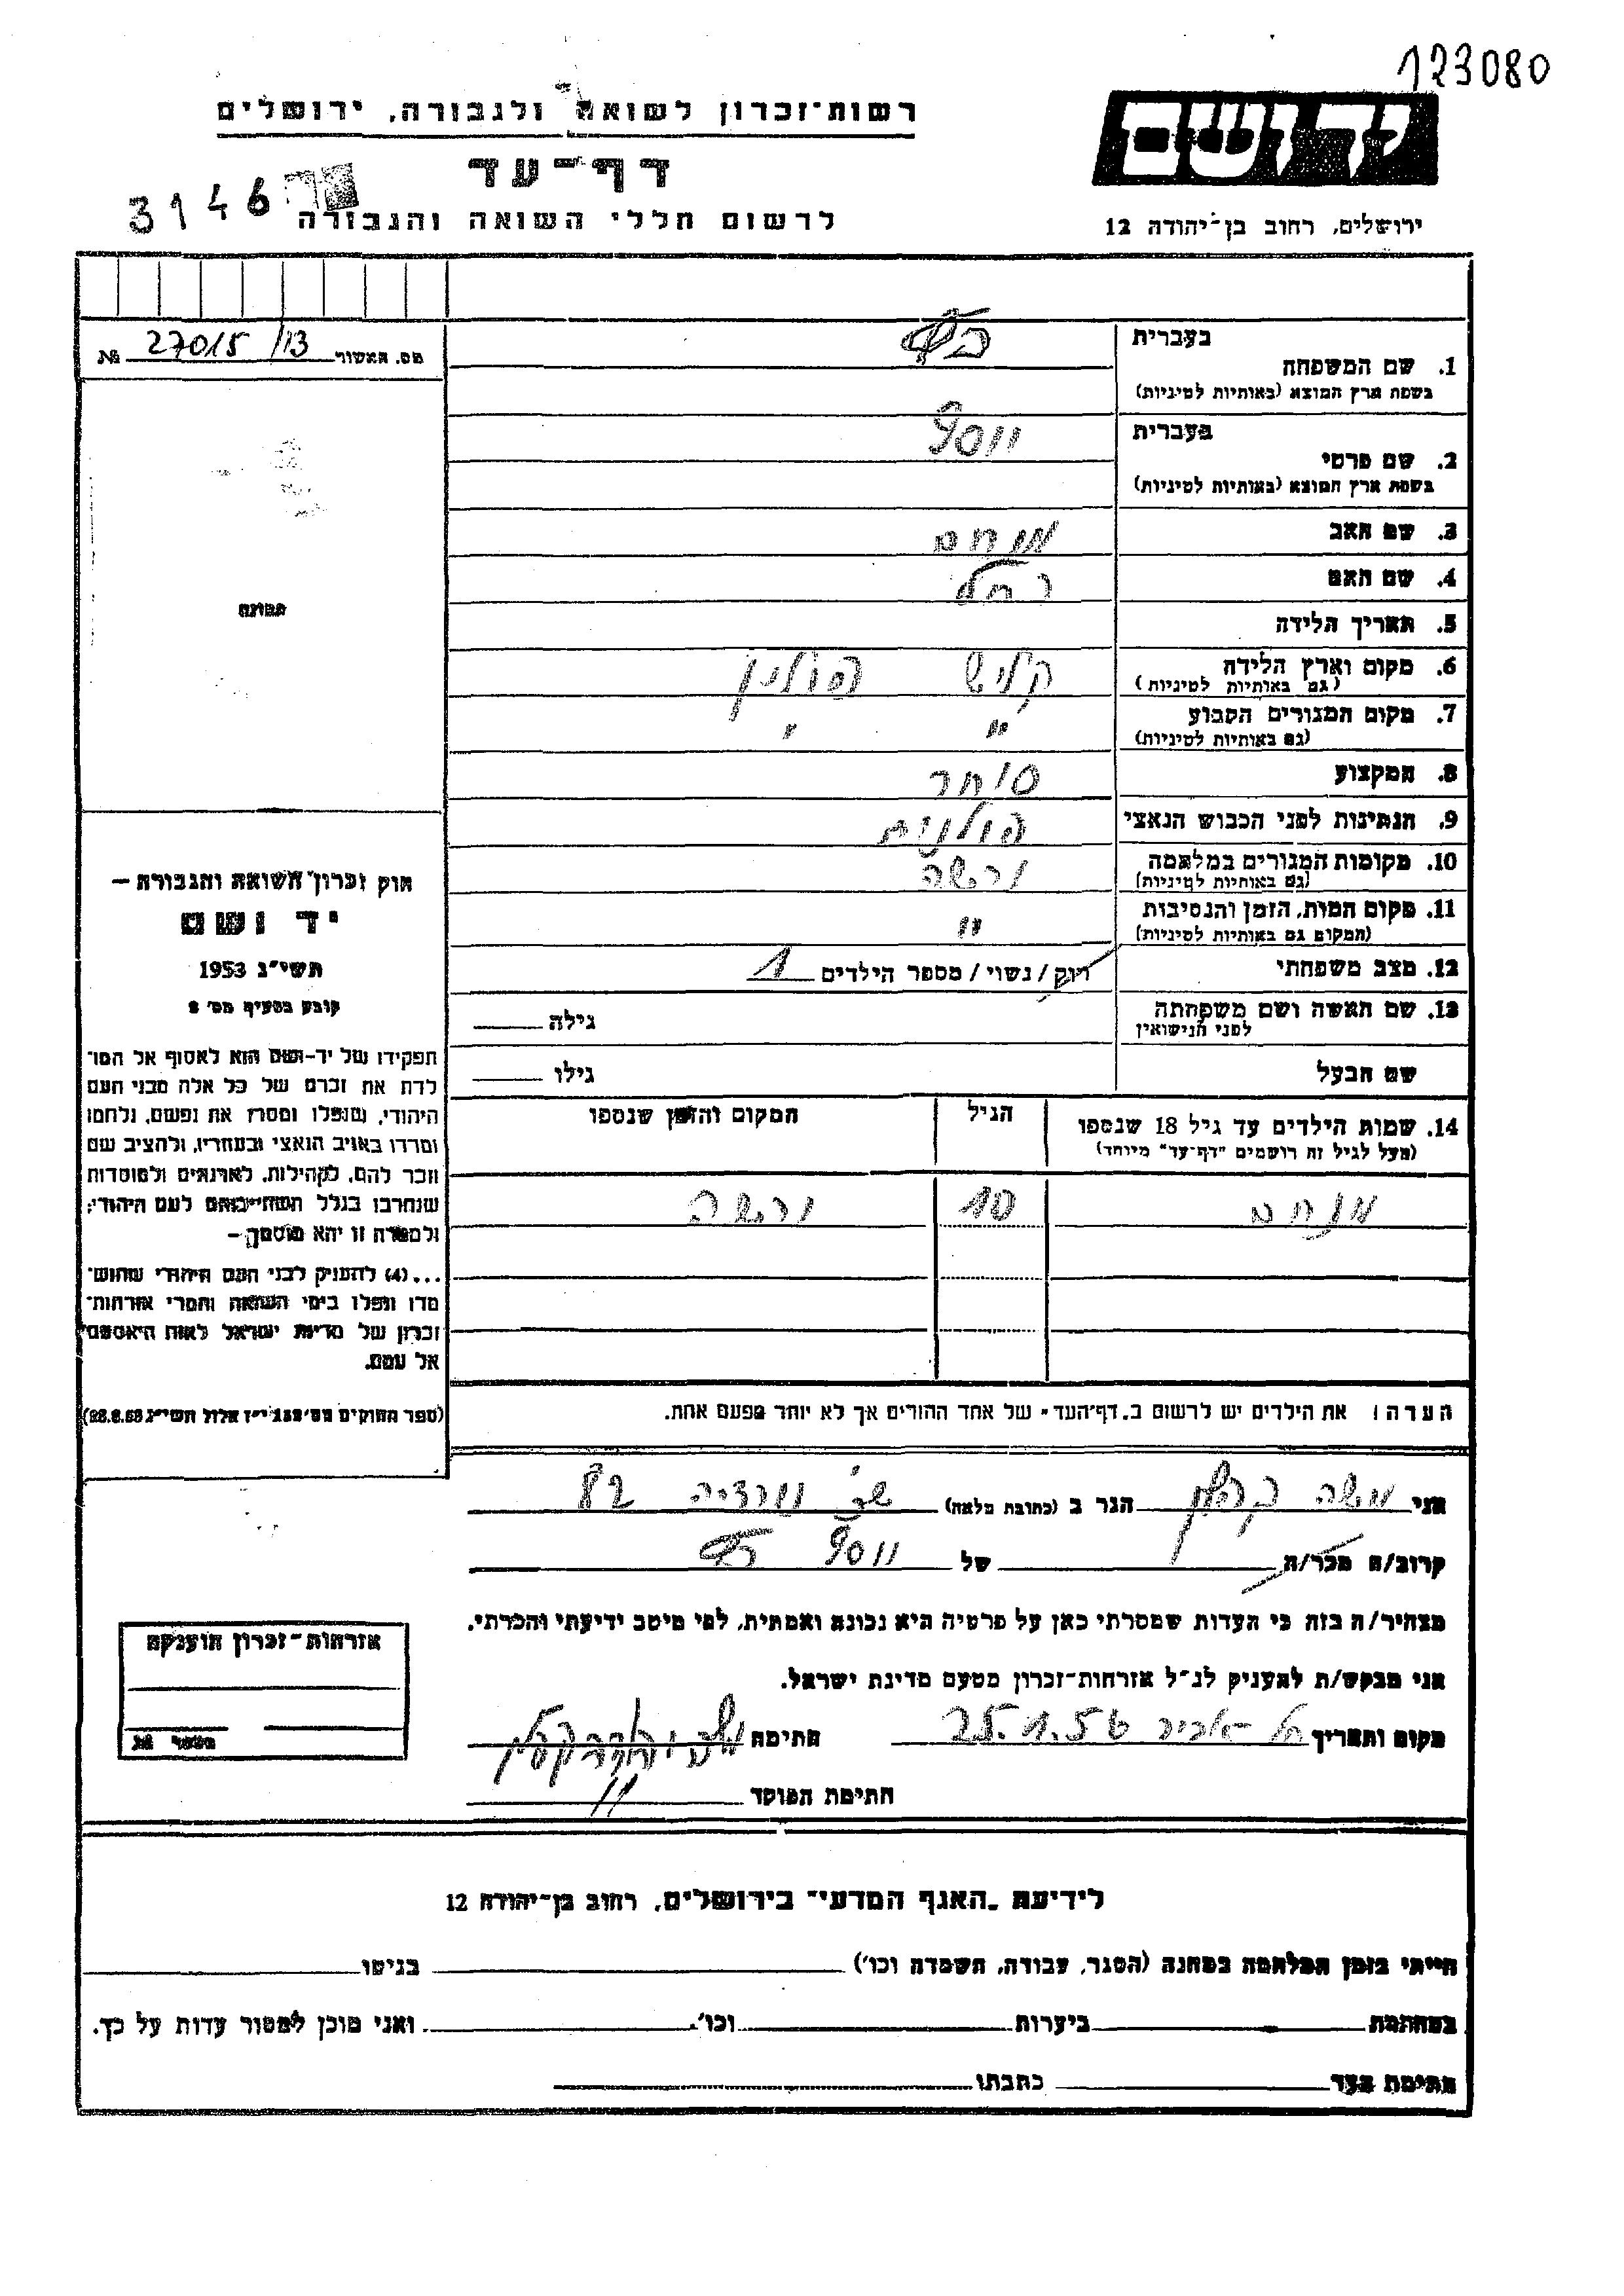 123080
רשות־זכרון לשואה ולגבורה, ירושלים
יד ושם
דף־עד
3146
לרשום חללי השואה והגבורה
ירושלים, רחוב בן־יהודה 12
מס. האשור 27015/13 №
בעברית
1. שם המשפחה
בשפת ארץ המוצא (באותיות לטיניות)
בעברית יוסף
2. שם פרטי
בשפת ארץ המוצא (באותיות לטיניות)
3. שם האב מנחם
4. שם האם רחל
5. תאריך הלידה
6. מקום וארץ הלידה קליש פולין
(גם באותיות לטיניות)
7. מקום המגורים הקבוע " "
(גם באותיות לטיניות)
8. המקצוע סוחר
9. הנתינות לפני הכבוש הנאצי פולנית
10. מקומות המגורים במלחמה ורשה
(גם באותיות לטיניות)
11. מקום המות, הזמן והנסיבות "
(המקום גם באותיות לטיניות)
12. מצב משפחתי רווק/ נשוי/ מספר הילדים 1
13. שם האשה ושם משפחתה גילה
לפני הנישואין
שם הבעל גילו
14. שמות הילדים עד גיל 18 שנספו הגיל המקום והזמן שנספו
(מעל לגיל זה רושמים "דף־עד" מיוחד)
מנחם 10 ורשה
הערה: את הילדים יש לרשום ב"דף־העד" של אחד ההורים אך לא יותר מפעם אחת.
תמונה
חוק זכרון השואה והגבורה –
יד ושם
תשי"ג 1953
קובע בסעיף מס' 2
תפקידו של יד-ושם הוא לאסוף אל המו־
לדת את זכרם של כל אלה מבני העם
היהודי, שנפלו ומסרו את נפשם, נלחמו
ומרדו באויב הנאצי ובעוזריו, ולהציב שם
וזכר להם, לקהילות, לארגונים ולמוסדות
שנחרבו בגלל השתייכותם לעם היהודי;
ולמטרה זו יהא מוסמך–
...(4) להעניק לבני העם היהודי שהוש־
מדו ונפלו בימי השואה והמרי אזרחות־
זכרון של מדינת ישראל לאות היאספם
אל עמם.
(ספר החוקים מס' 132 י"ז אלול תשי"ג 28.8.53)
אני משה הגר ב (כתובת מלאה) שכ' 82
קרוב/ה מכר/ה של יוסף
מצהיר/ה בזה כי העדות שמסרתי כאן על פרטיה היא נכונה ואמתית, לפי מיטב ידיעתי והכרתי.
אני מבקש/ת להעניק לנ"ל אזרחות־זכרון מטעם מדינת ישראל.
מקום ותאריך תל-אביב 25.1.56 חתימה
חתימת הפוקד
אזרחות־זכרון הוענקה
מספר №
לידיעת "האגף המדעי" בירושלים, רחוב בן־יהודה 12
הייתי בזמן המלחמה במחנה (הסגר, עבודה, השמדה וכו') בגיטו
במחתרת ביערות וכו'. ואני מוכן למסור עדות על כך.
חתימת העד כתבתו